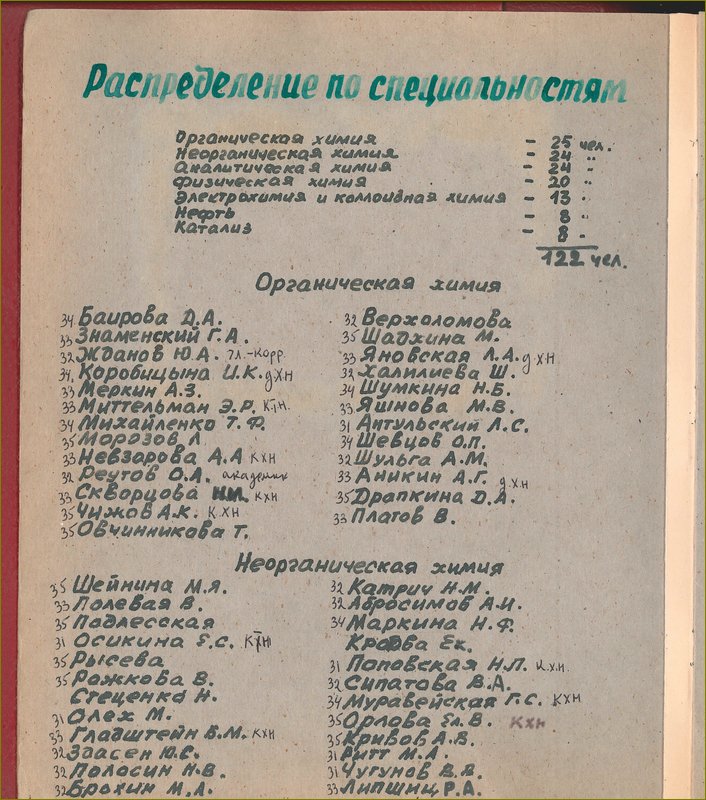 Распределение по специальностям
Органическая химия - 25 чел.
Неорганическая химия - 24 "
Аналитическая химия - 24 "
Физическая химия - 20 "
Электрохимия и коллоидная химия - 13 "
Нефть - 8 "
Катализ - 8 "
122 чел.
Органическая химия
34 Баирова Д.А.
33 Знаменский Г.А.
32 Жданов Ю.А. чл.-корр.
34 Коробицына И.К. дхн
33 Меркин А.З.
33 Миттельман Э.Р. ктн.
34 Михайленко Т.Ф.
35 Морозов Л.
33 Невзорова А.А кхн
32 Реутов О.А. академик
33 Скворцова Н.И. кхн
35 Чижов А.К. кхн
35 Овчинникова Т.
32 Верхоломова
35 Шадхина М.
33 Яновская Л.А. дхн
32 Халилиева Ш.
34 Шумкина Н.Б.
33 Яшнова М.В.
31 Антульский Л.С.
34 Шевцов О.П.
32 Шульга А.М.
33 Аникин А.Г. дхн
35 Драпкина Д.А.
33 Платов В.
Неорганическая химия
35 Шейнина М.Я.
33 Полевая В.
35 Подлесская
31 Осикина Е.С. ктн
35 Рысева
35 Рожкова В.
Стеценко Н.
31 Олех М.
33 Гладштейн Б.М. кхн
32 Здасен Ю.С.
32 Полосин Н.В.
32 Брохин М.А.
32 Катрич Н.М.
32 Абросимов А.И.
34 Маркина Н.Ф.
Ек.
31 Поповская Н.П. к.х.н.
32 Сипатова В.А.
34 Муравейская Г.С. кхн
35 Орлова Ел.В. кхн
35 Кривов А.В.
31 Ритт М.А.
31 Чугунов В.В.
33 Липшиц Р.А.